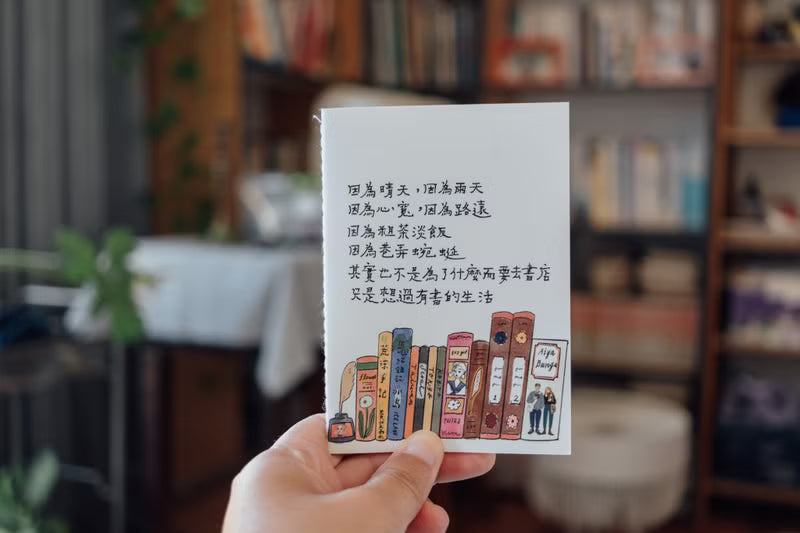 因為晴天，因為雨天
因為心寬，因為路遠
因為粗茶淡飯
因為巷弄蜿蜒
其實也不是為了什麼而要去書店
只是想過有書的生活
荒涼手記
1
2
Aiya
Dunga